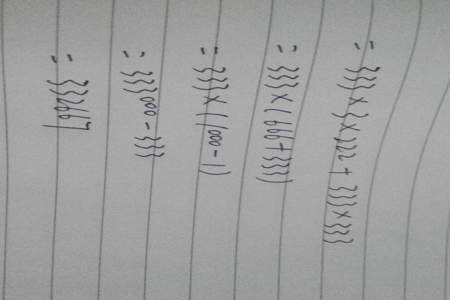 = 333 × 3 × 222 + 333 × 333
= 333 × (666 + 333)
= 333 × (1000 - 1)
= 333000 - 333
= 332667